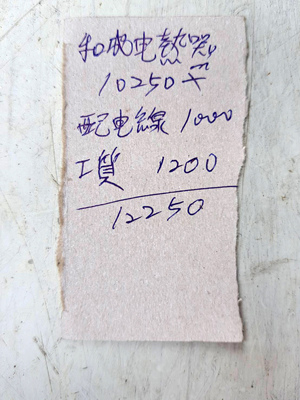 和成电熱器
10250元
配电線 1000
工質 1200
12250